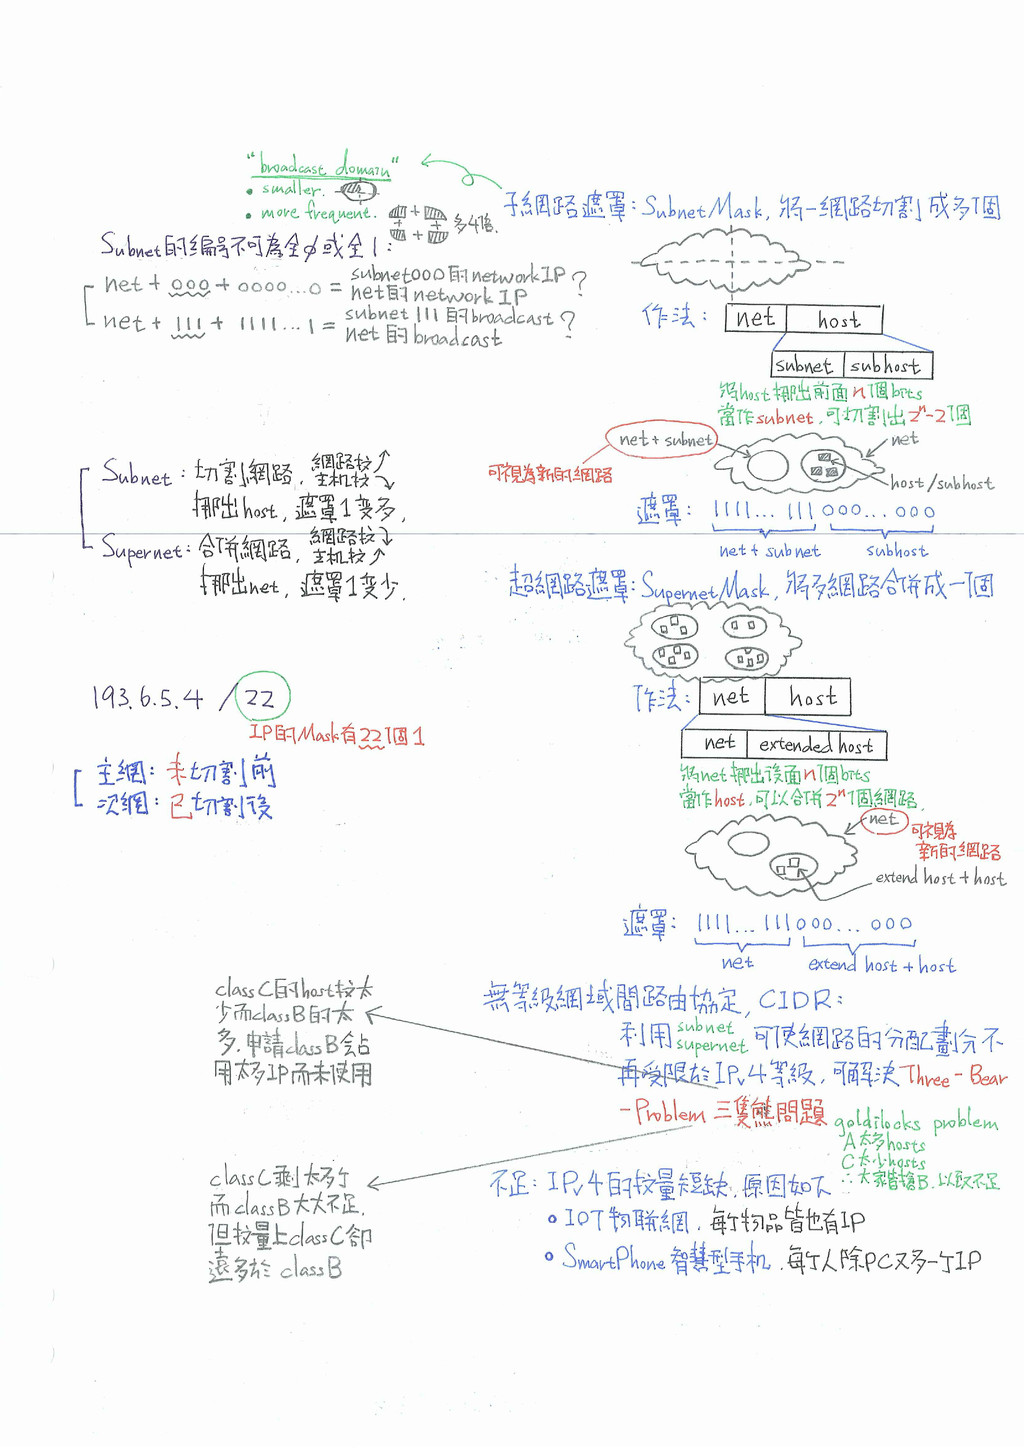 "broadcast domain"
• smaller.
• more frequent.
多4倍.
Subnet的編号不可為全φ或全1:
net + 000 + 0000...0 = subnet000的network IP ?
net的network IP
net + 111 + 1111...1 = subnet 111的broadcast ?
net的broadcast
Subnet: 切割網路, 網路較↗
主机較↘
挪出host, 遮罩1变多,
Supernet: 合併網路, 網路較↘
主机較↗
挪出net, 遮罩1变少.
193.6.5.4 / 22
IP的Mask有22個1
主網: 未切割前
次網: 已切割後
子網路遮罩: Subnet Mask, 將一網路切割成多個
作法: net host
subnet subhost
將host挪出前面n個bits
當作subnet, 可切割出2ⁿ-2個
net + subnet
net
可視為新的網路
host/subhost
遮罩: 1111... 111000... 000
net + subnet subhost
超網路遮罩: Supernet Mask, 將多網路合併成一個
作法: net host
net extended host
將net挪出後面n個bits
當作host, 可以合併2ⁿ個網路.
net 可視為
新的網路
extend host + host
遮罩: 1111... 111000... 000
net extend host + host
無等級網域間路由協定, CIDR:
利用 subnet
supernet 可使網路的分配劃分不
再受限於IPv4等級, 可解決Three-Bear
-Problem 三隻熊問題
goldilocks problem
A 太多hosts
C 太少hosts
∴大家皆搶B, 以致不足
class C的host較太
少而class B的太
多, 申請class B会占
用太多IP而未使用
class C剩太多个
而class B大大不足,
但數量上class C卻
遠多於 class B
不足: IPv4的數量短缺, 原因如下
• IOT物聯網, 每个物品皆也有IP
• SmartPhone 智慧型手机, 每个人除PC又多一个IP